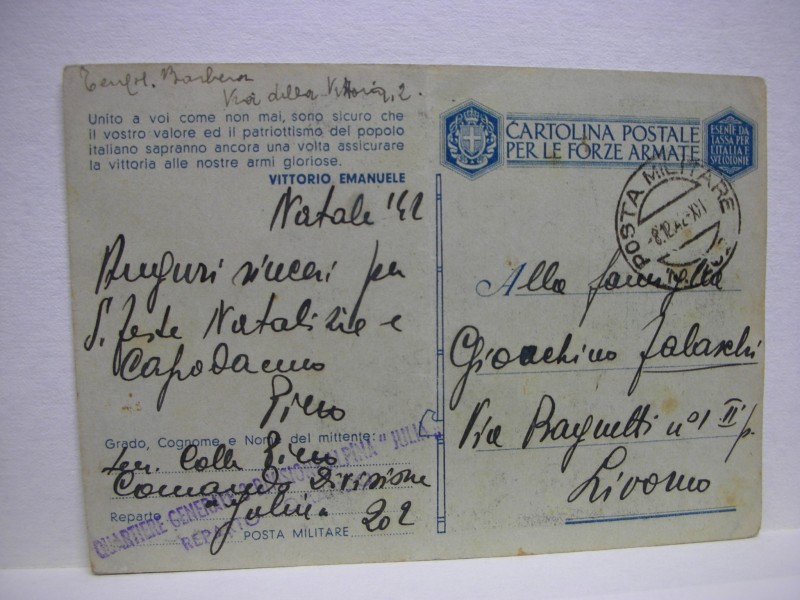 Barbera
Via della Vittoria, 2.
Unito a voi come non mai, sono sicuro che
il vostro valore ed il patriottismo del popolo
italiano sapranno ancora una volta assicurare
la vittoria alle nostre armi gloriose.
VITTORIO EMANUELE
Natale '42
Auguri sinceri per
S. feste Natalizie e
Capodanno
Piero
Grado, Cognome e Nome del mittente:
ten. Colla Piero
Comando Divisione
Reparto Julia
POSTA MILITARE 202
QUARTIERE GENERALE DIVISIONE ALPINA "JULIA"
REPARTO
CARTOLINA POSTALE
PER LE FORZE ARMATE
ESENTE DA
TASSA PER
L'ITALIA E
SUE COLONIE
POSTA MILITARE
8.12.42-XXI
Alla famiglia
Gioachino
Via n° 1 II p.
Livorno